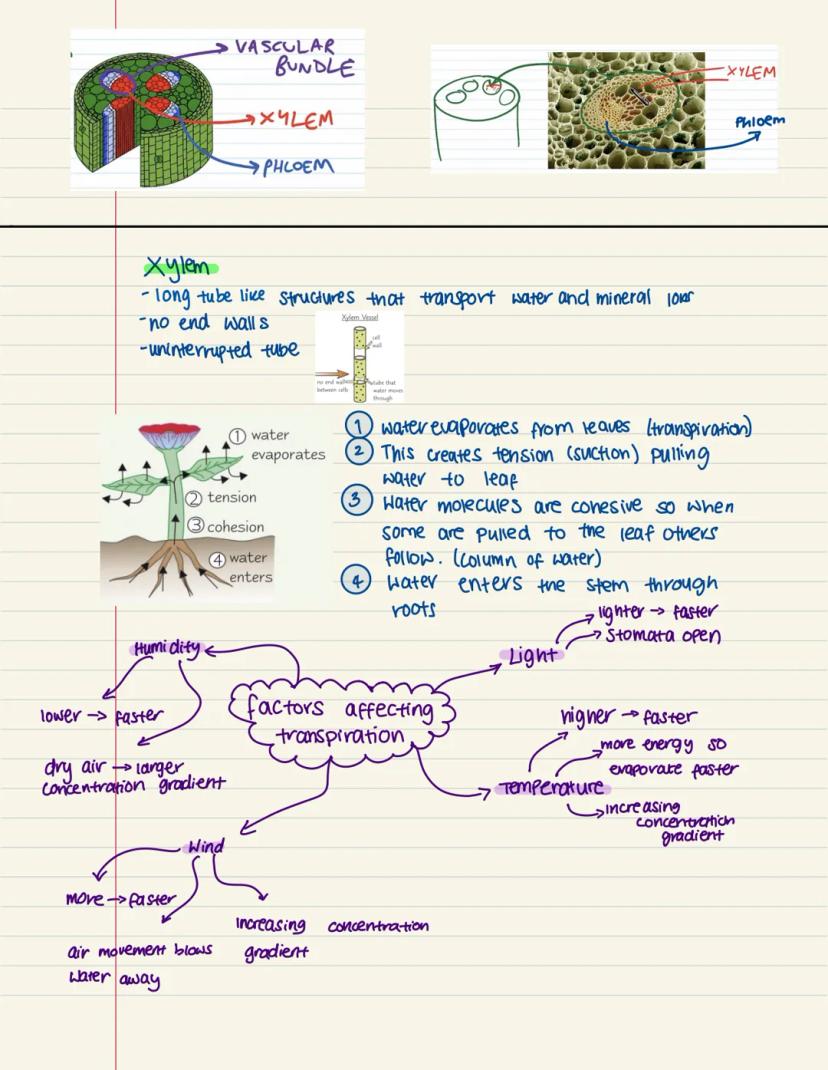 VASCULAR
BUNDLE
XYLEM
PHLOEM
XYLEM
Phloem
Xylem
- long tube like structures that transport water and mineral ions
- no end walls
- uninterrupted tube
Xylem Vessel
cell
wall
no end walls
between cells
tube that
water moves
through
① water
evaporates
② tension
③ cohesion
④ water
enters
① water evaporates from leaves (transpiration)
② This creates tension (suction) pulling
water to leaf
③ Water molecules are cohesive so when
some are pulled to the leaf others
follow. (column of water)
④ Water enters the stem through
roots
factors affecting
transpiration
Humidity
lower → faster
dry air → larger
concentration gradient
Light
lighter → faster
Stomata open
Temperature
higher → faster
more energy so
evaporate faster
increasing
concentration
gradient
Wind
more → faster
air movement blows
water away
Increasing concentration
gradient